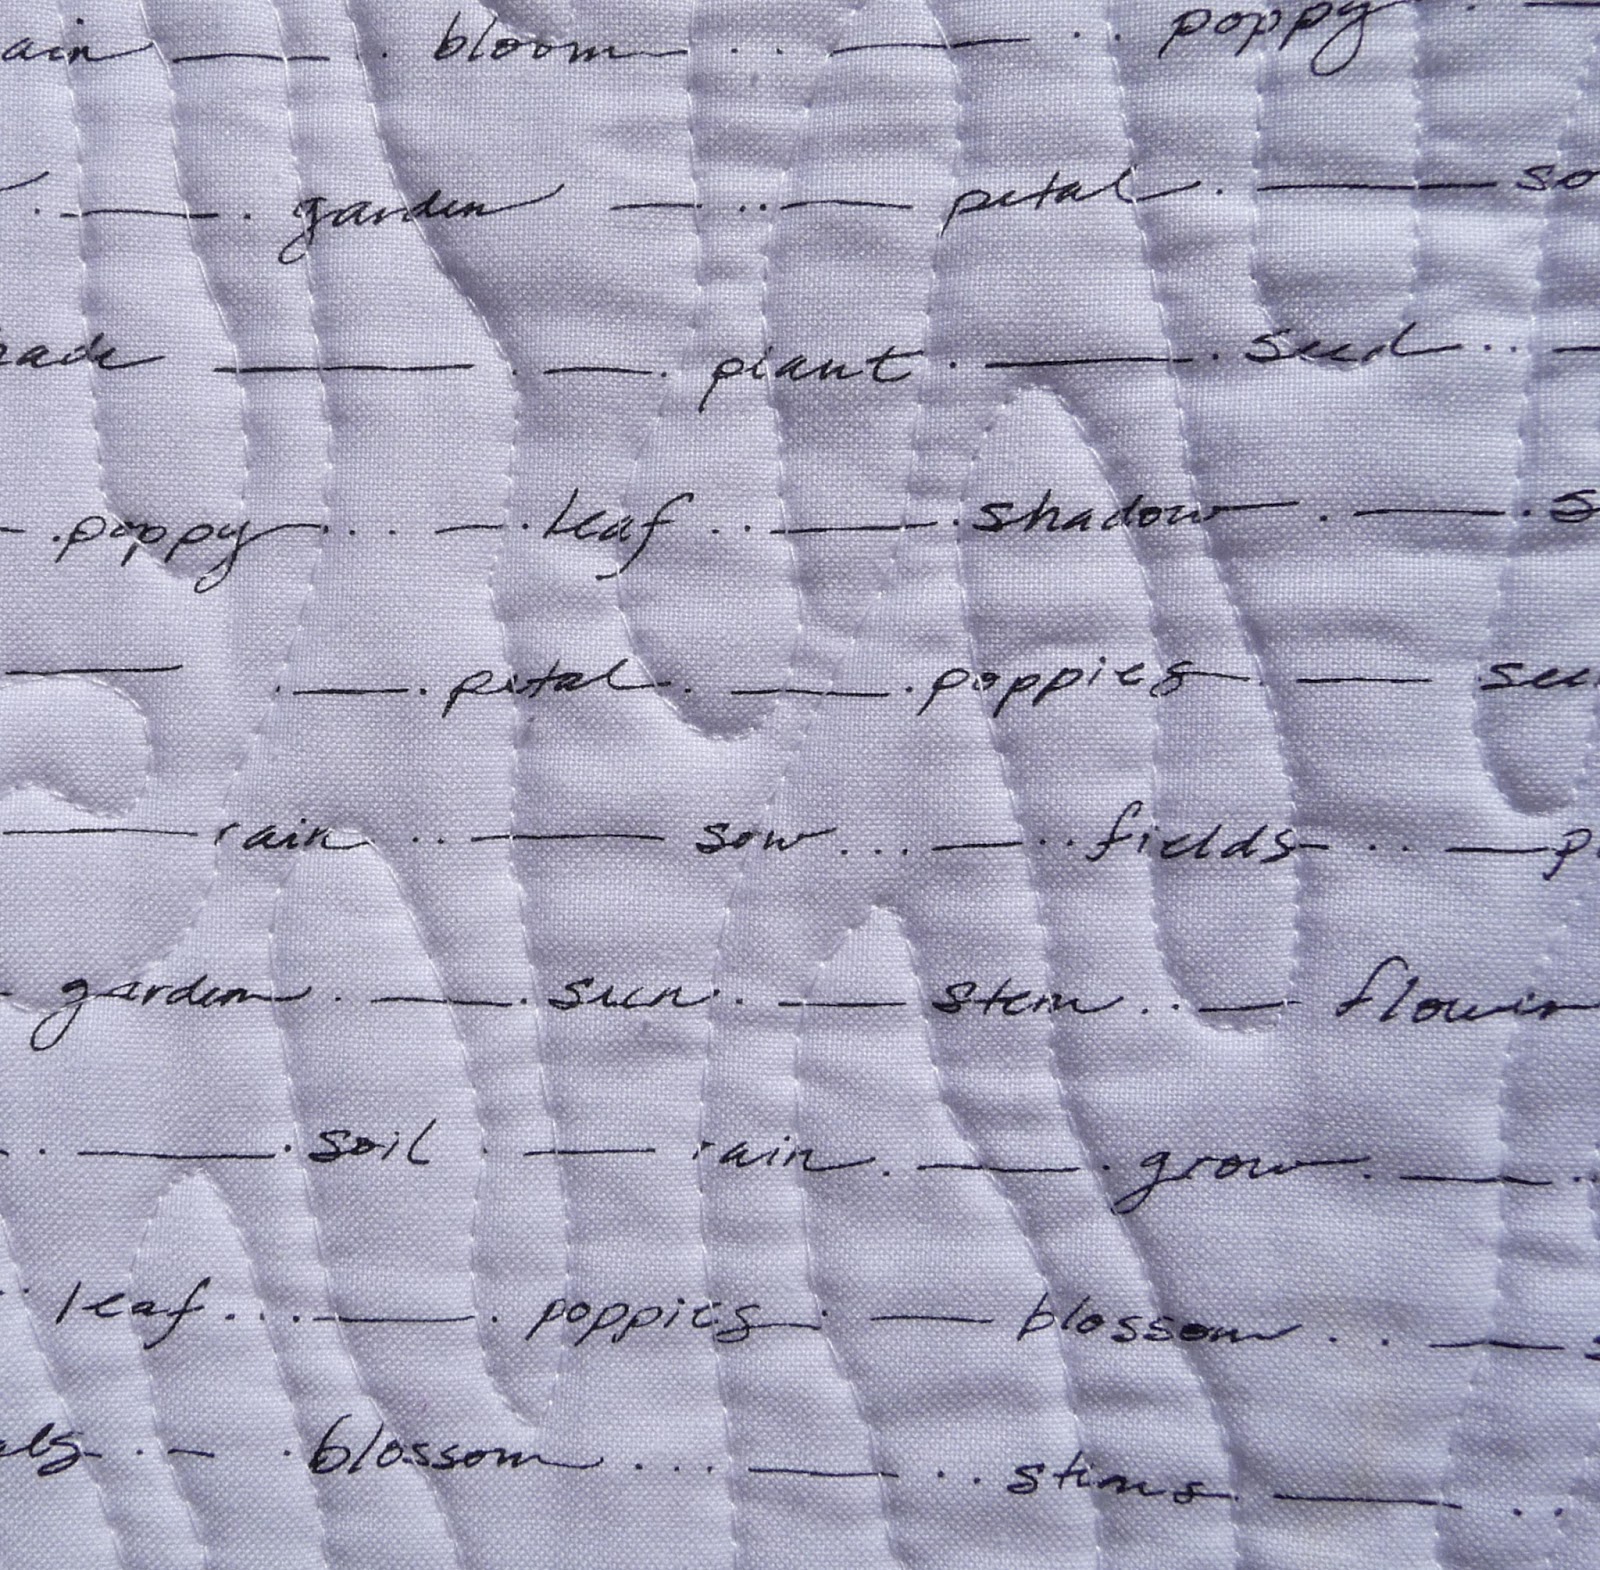 ain bloom poppy
garden petal so
hade plant seed
poppy leaf shadow s
petal poppies see
rain sow fields p
garden sun stem flower
soil rain grow
leaf poppies blossom s
als blossom stems